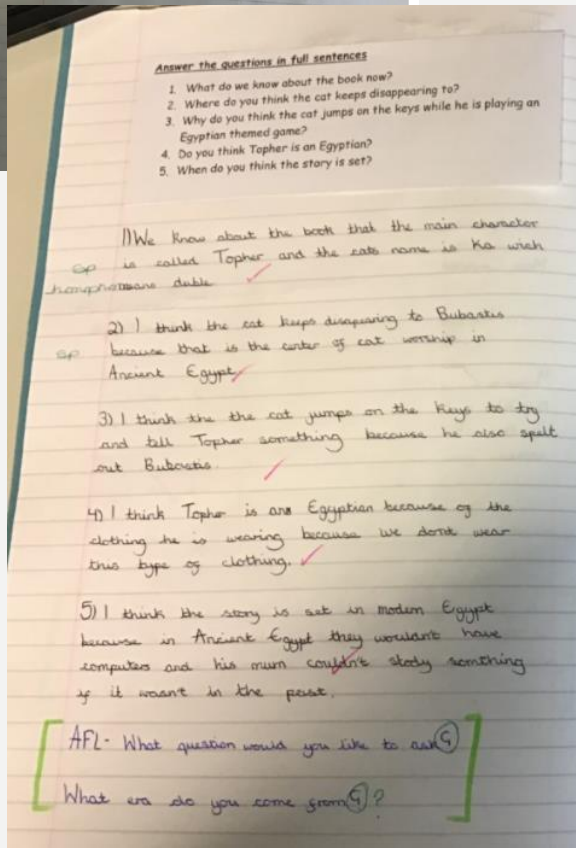 Answer the questions in full sentences
1. What do we know about the book now?
2. Where do you think the cat keeps disappearing to?
3. Why do you think the cat jumps on the keys while he is playing an
Egyptian themed game?
4. Do you think Topher is an Egyptian?
5. When do you think the story is set?
1) We know about the book that the main character
sp is called Topher and the cats name is Ka wich
means duble
2) I think the cat keeps disapearing to Bubastis
sp because that is the center of cat worship in
Ancient Egypt
3) I think the the cat jumps on the keys to try
and tell Topher something because he also spelt
out Bubastis.
4) I think Topher is an Egyptian because of the
clothing he is wearing because we dont wear
this type of clothing.
5) I think the story is set in modern Egypt
because in Ancient Egypt they wouldn't have
computers and his mum couldn't stody somthing
if it wasn't in the past.
AFL- What question would you like to ask
What era do you come from ?